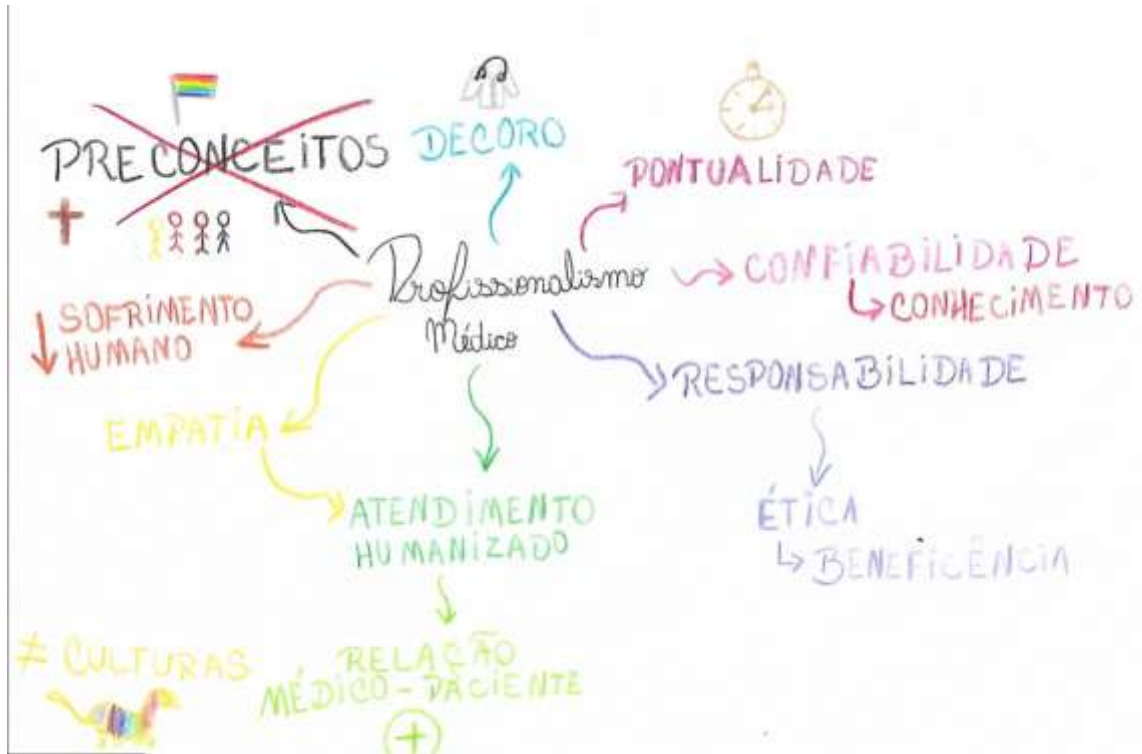 PRECONCEITOS
DECORO
PONTUALIDADE
Profissionalismo
Médico
CONFIABILIDADE
↳ CONHECIMENTO
↓ SOFRIMENTO
HUMANO
RESPONSABILIDADE
EMPATIA
ATENDIMENTO
HUMANIZADO
ÉTICA
↳ BENEFICÊNCIA
≠ CULTURAS
RELAÇÃO
MÉDICO-PACIENTE
+